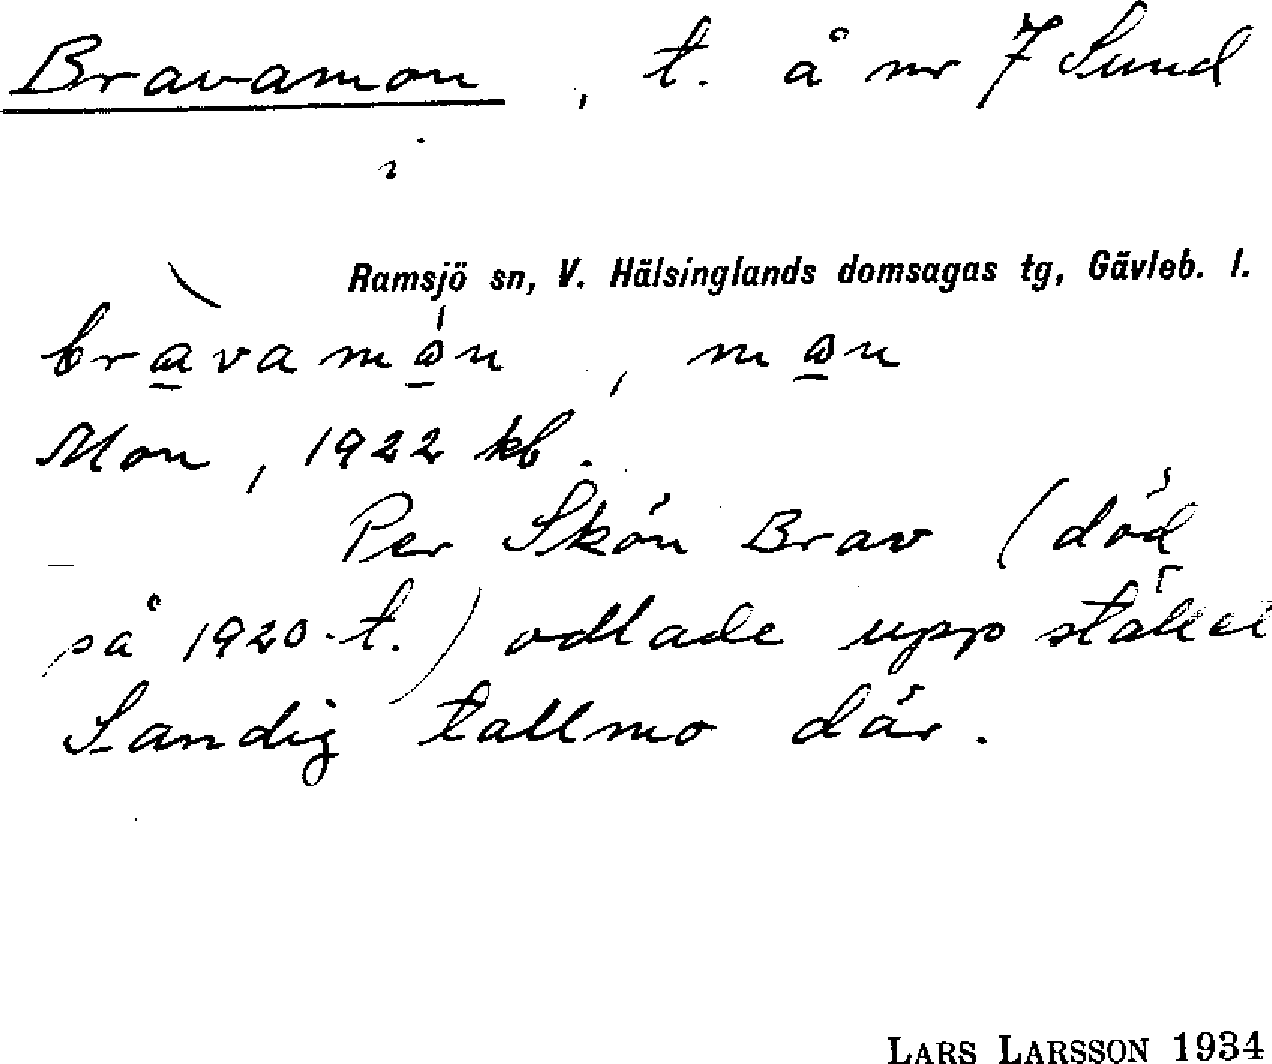 Bravamon, t. å nr 7 Sund
i
Ramsjö sn, V. Hälsinglands domsagas tg, Gävleb. l.
bràvamón, mon
Mon, 1922 kb.
Per Skön Brav (död
på 1920-t.) odlade upp stället
Sandig tallmo där.
LARS LARSSON 1934